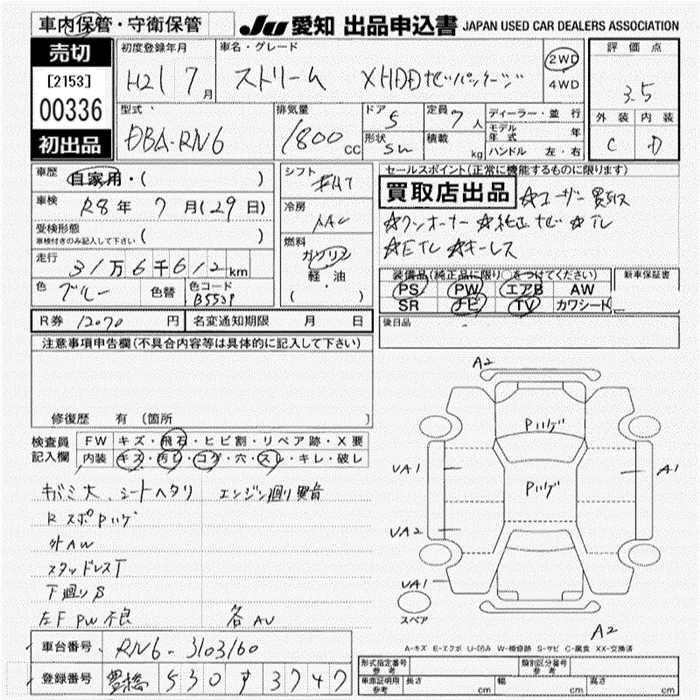 車内保管・守衛保管
JU 愛知 出品申込書 JAPAN USED CAR DEALERS ASSOCIATION
売切
[2153]
00336
初出品
初度登録年月
H21 7月
車名・グレード
ストリーム X HDDナビパッケージ
2WD
4WD
評価点
3.5
外装 内装
C D
型式
DBA-RN6
排気量
1800 cc
ドア 5
形状 SW
定員 7人
積載 kg
ディーラー・並行
モデル年式 年
ハンドル 左・右
車歴 自家用・( )
車検 R8年 7月(29日)
受検形態
車検付きのみ記入して下さい ( )
走行 31万6千612km
色 ブルー
色替
色コード B553P
シフト FAT
冷房 AAC
燃料 ガソリン
軽・油
( )
セールスポイント(正常に機能するものに限ります)
買取店出品 ☆ユーザー買取
☆ワンオーナー ☆純正ナビ ☆TV
☆ETC ☆キーレス
装備品(純正品に限り○をつけてください)
PS PW エアB AW
SR ナビ TV カワシート
新車保証書
後日品
R券 12070 円 名変通知期限 月 日
注意事項申告欄(不具合内容等は具体的に記入して下さい)
修復歴 有 〔箇所 〕
検査員記入欄
FW キズ・飛石・ヒビ割・リペア跡・X要
内装 キズ・汚レ・コゲ・穴・スレ・キレ・破レ
キバミ大、シートヘタリ エンジン廻り異音
RスポPハゲ
外AW
スタッドレスT
下廻りS
左F PW不良 各AU
A2
Pハゲ
UA1
A1
Pハゲ
UA2
UA1
スペア
A2
A-キズ E-エクボ U-凹み W-補修跡 S-サビ C-腐食 XX-交換済
車台番号 RN6-3103160
登録番号 豊橋 530 す 3747
形式指定番号 参考
類別区分番号 参考
車庫証明用 参考
長さ cm
幅 cm
高さ cm